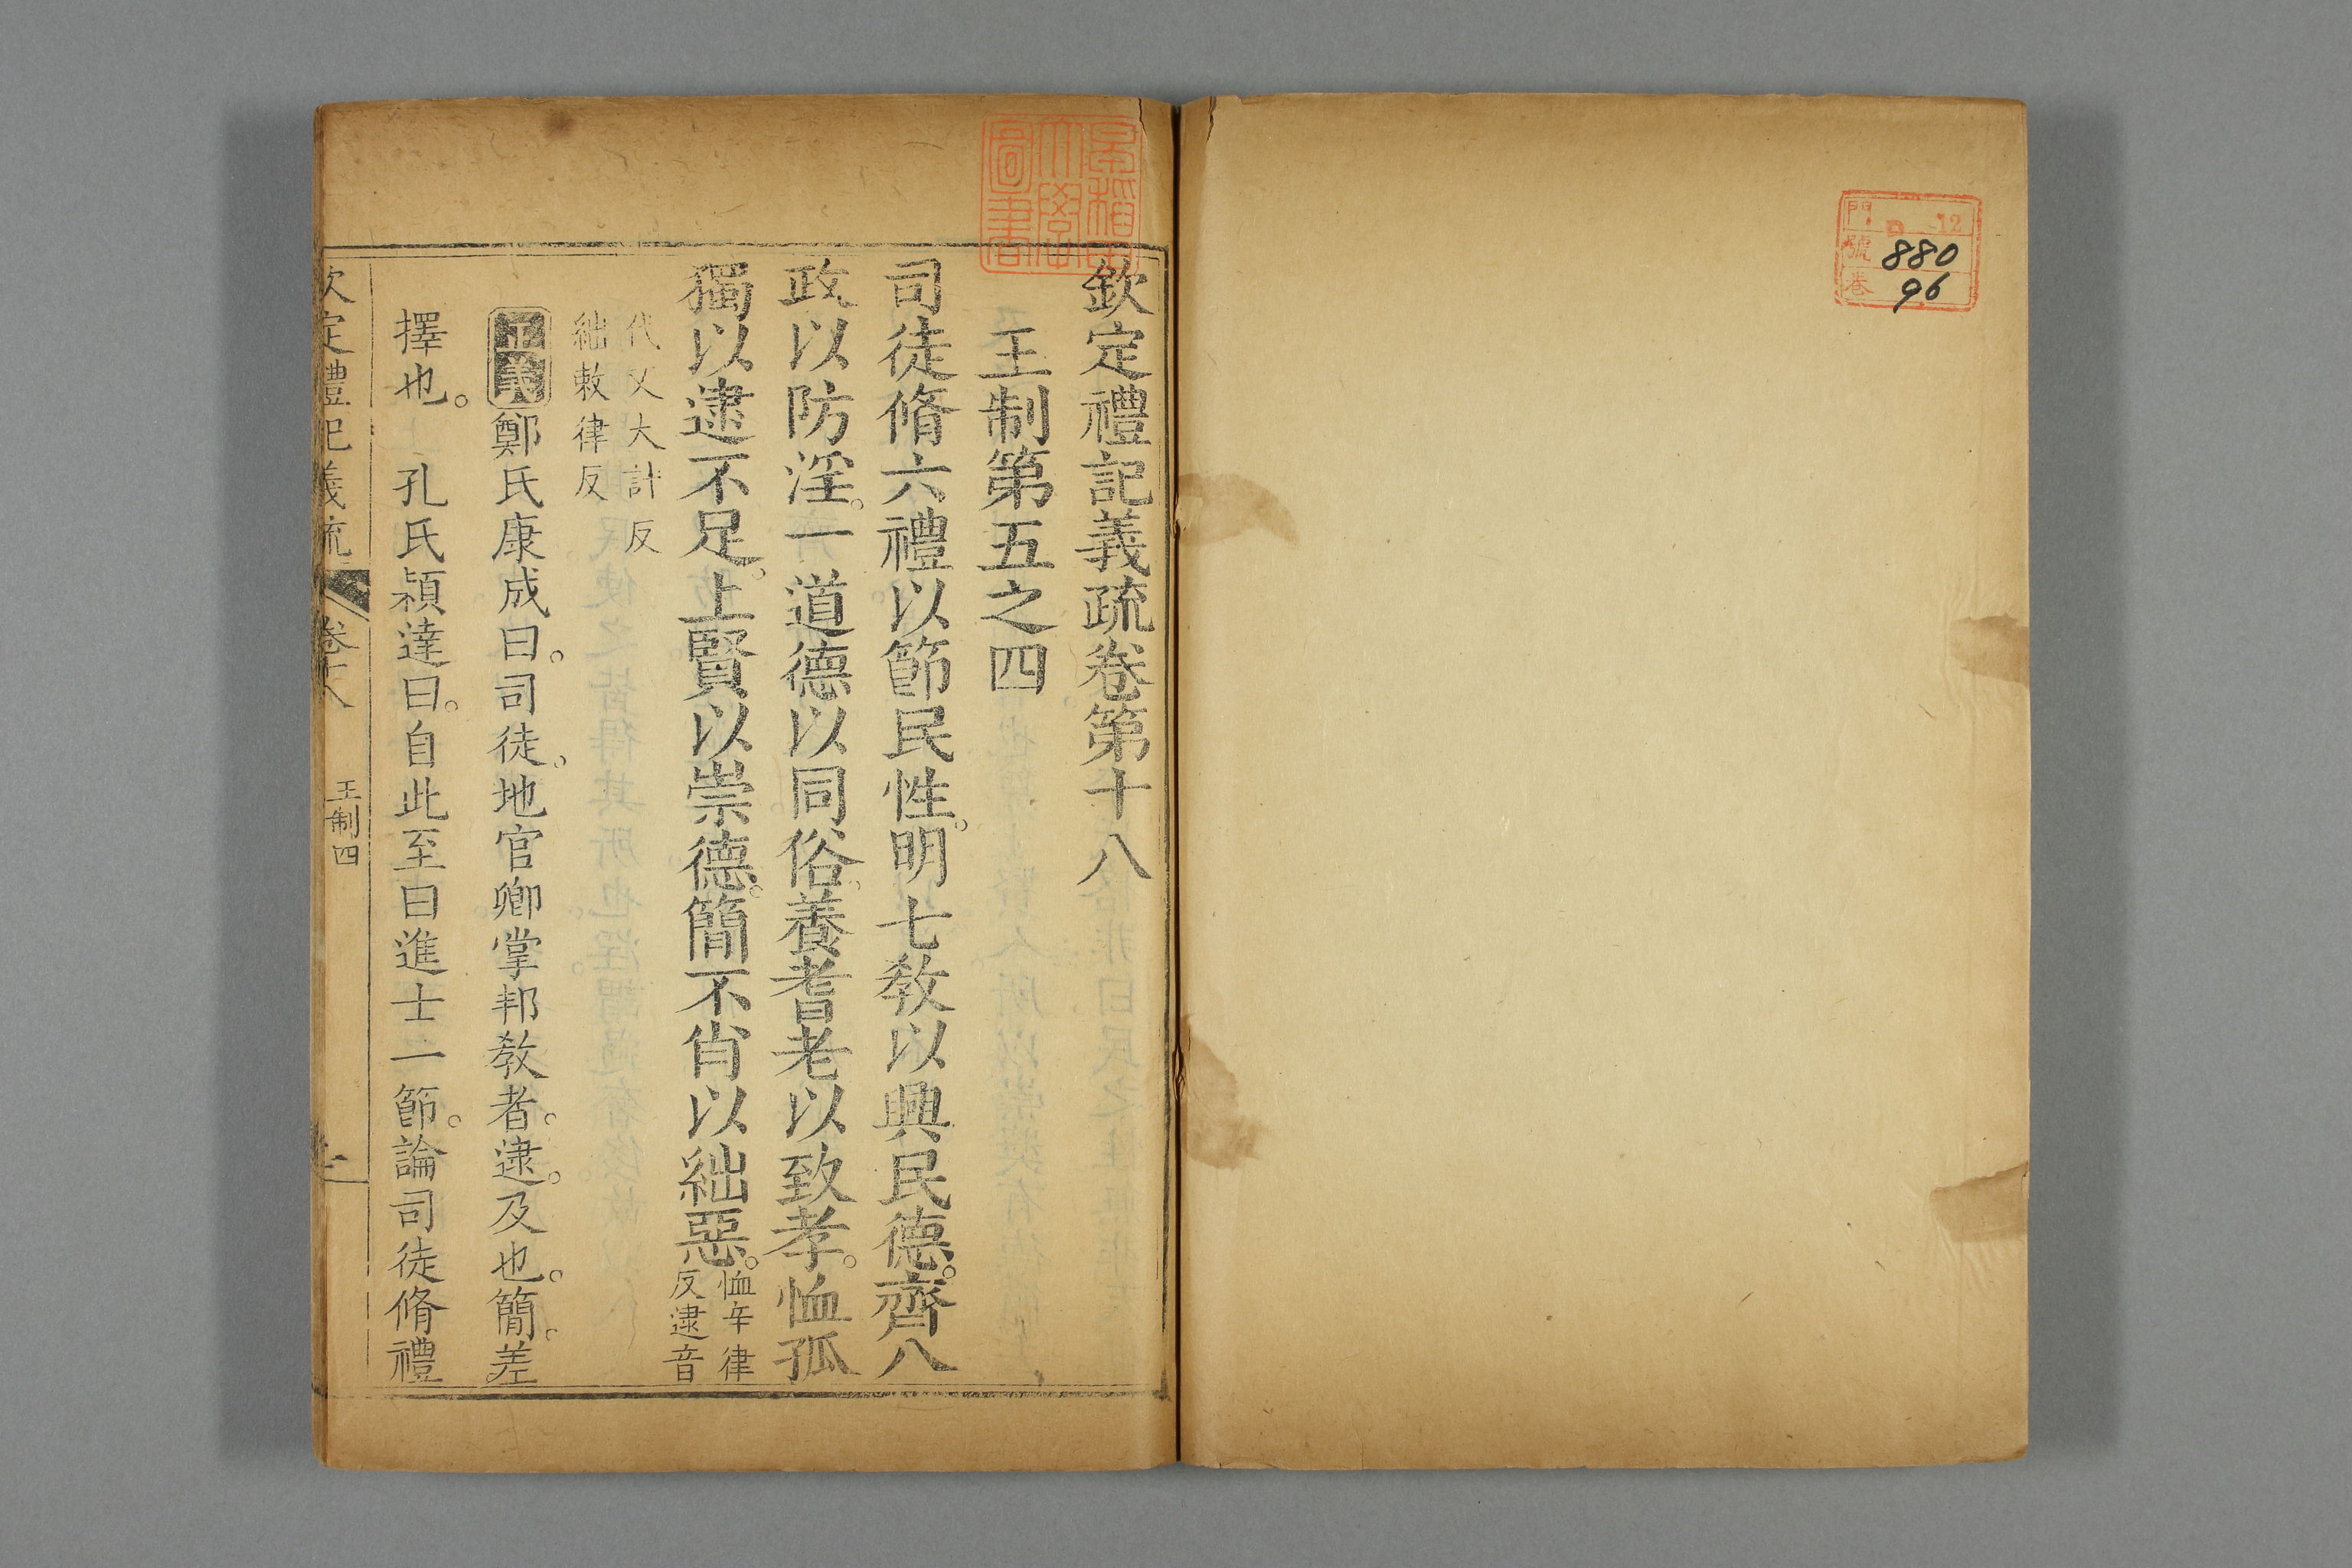 門 D 12
號 880
卷 96
早稲田大學圖書
欽定禮記義疏卷第十八
王制第五之四
司徒脩六禮以節民性。明七敎以興民德。齊八
政以防淫。一道德以同俗。養耆老以致孝。恤孤
獨以逮不足。上賢以崇德。簡不肖以絀惡。恤辛律
反逮音
代又大計反
絀敕律反
正義鄭氏康成曰。司徒。地官卿掌邦敎者。逮。及也。簡。差
擇也。 孔氏穎達曰。自此至曰進士一節。論司徒脩禮
欽定禮記義疏 卷十八 王制四 一